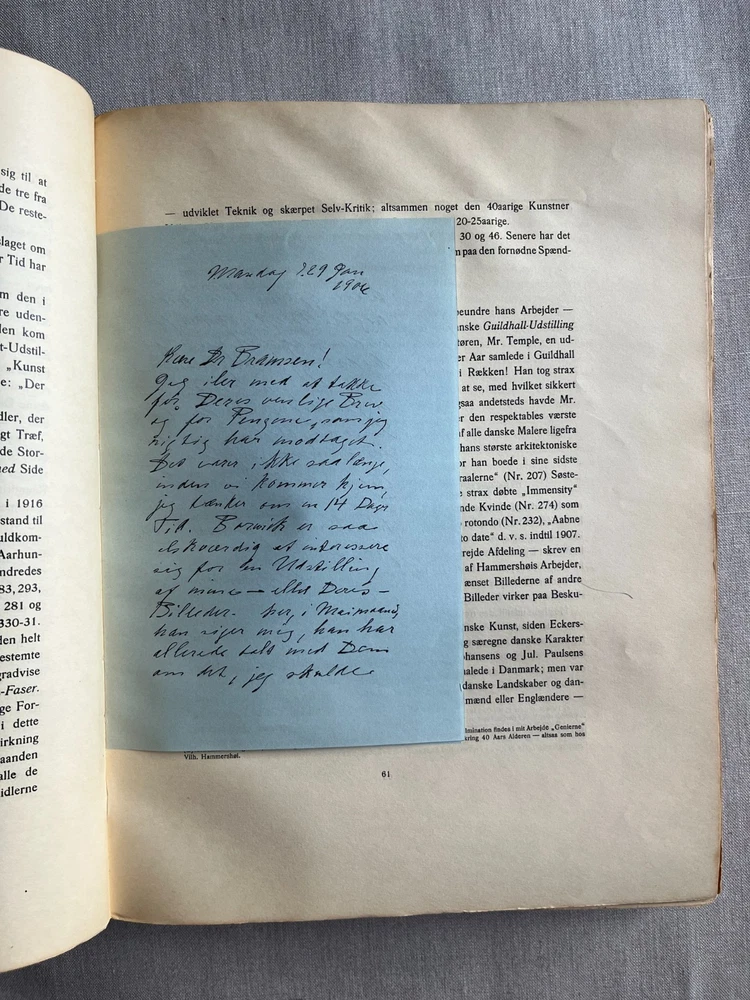 sig til at
de tre fra
De reste-
slaget om
r Tid har
m den i
re uden-
len kom
t-Udstil-
„Kunst
e: „Der
dler, der
gt Træf,
de Stor-
ned Side
i 1916
stand til
uldkom-
Aarhun-
ndredes
83, 293,
281 og
330-31.
den helt
estemte
gradvise
-Faser.
ge For-
i dette
irkning
aanden
alle de
idlerne
— udviklet Teknik og skærpet Selv-Kritik; altsammen noget den 40aarige Kunstner
20-25aarige.
30 og 46. Senere har det
m paa den fornødne Spænd-
Mandag d. 29 Jan
1906
Kære Dr Bramsen!
Jeg iler med at takke
for Deres venlige Brev
og for Pengene, som jeg
rigtig har modtaget.
Det varer ikke saa længe,
inden vi kommer hjem,
jeg tænker om en 14 Dages
Tid. Borwick er saa
elskværdig at interessere
sig for en Udstilling
af mine — eller Deres —
Billeder her, i Maimaaned,
han siger mig, han har
allerede talt med Dem
om det, jeg skulde
beundre hans Arbejder —
anske Guildhall-Udstilling
tøren, Mr. Temple, en ud-
er Aar samlede i Guildhall
i Rækken! Han tog strax
at se, med hvilket sikkert
gsaa andetsteds havde Mr.
er den respektables værste
af alle danske Malere ligefra
hans største arkitektoniske
or han boede i sine sidste
raalerne“ (Nr. 207) Søste-
strax døbte „Immensity“
nde Kvinde (Nr. 274) som
rotondo (Nr. 232), „Aabne
to date“ d. v. s. indtil 1907.
rejde Afdeling — skrev en
af Hammershøis Arbejder,
ænset Billederne af andre
Billeder virker paa Besku-
nske Kunst, siden Eckers-
g særegne danske Karakter
ohansens og Jul. Paulsens
nalede i Danmark; men var
danske Landskaber og dan-
mænd eller Englændere —
limination findes i mit Arbejde „Genierne“
kring 40 Aars Alderen — altsaa som hos
Vilh. Hammershøi.
61